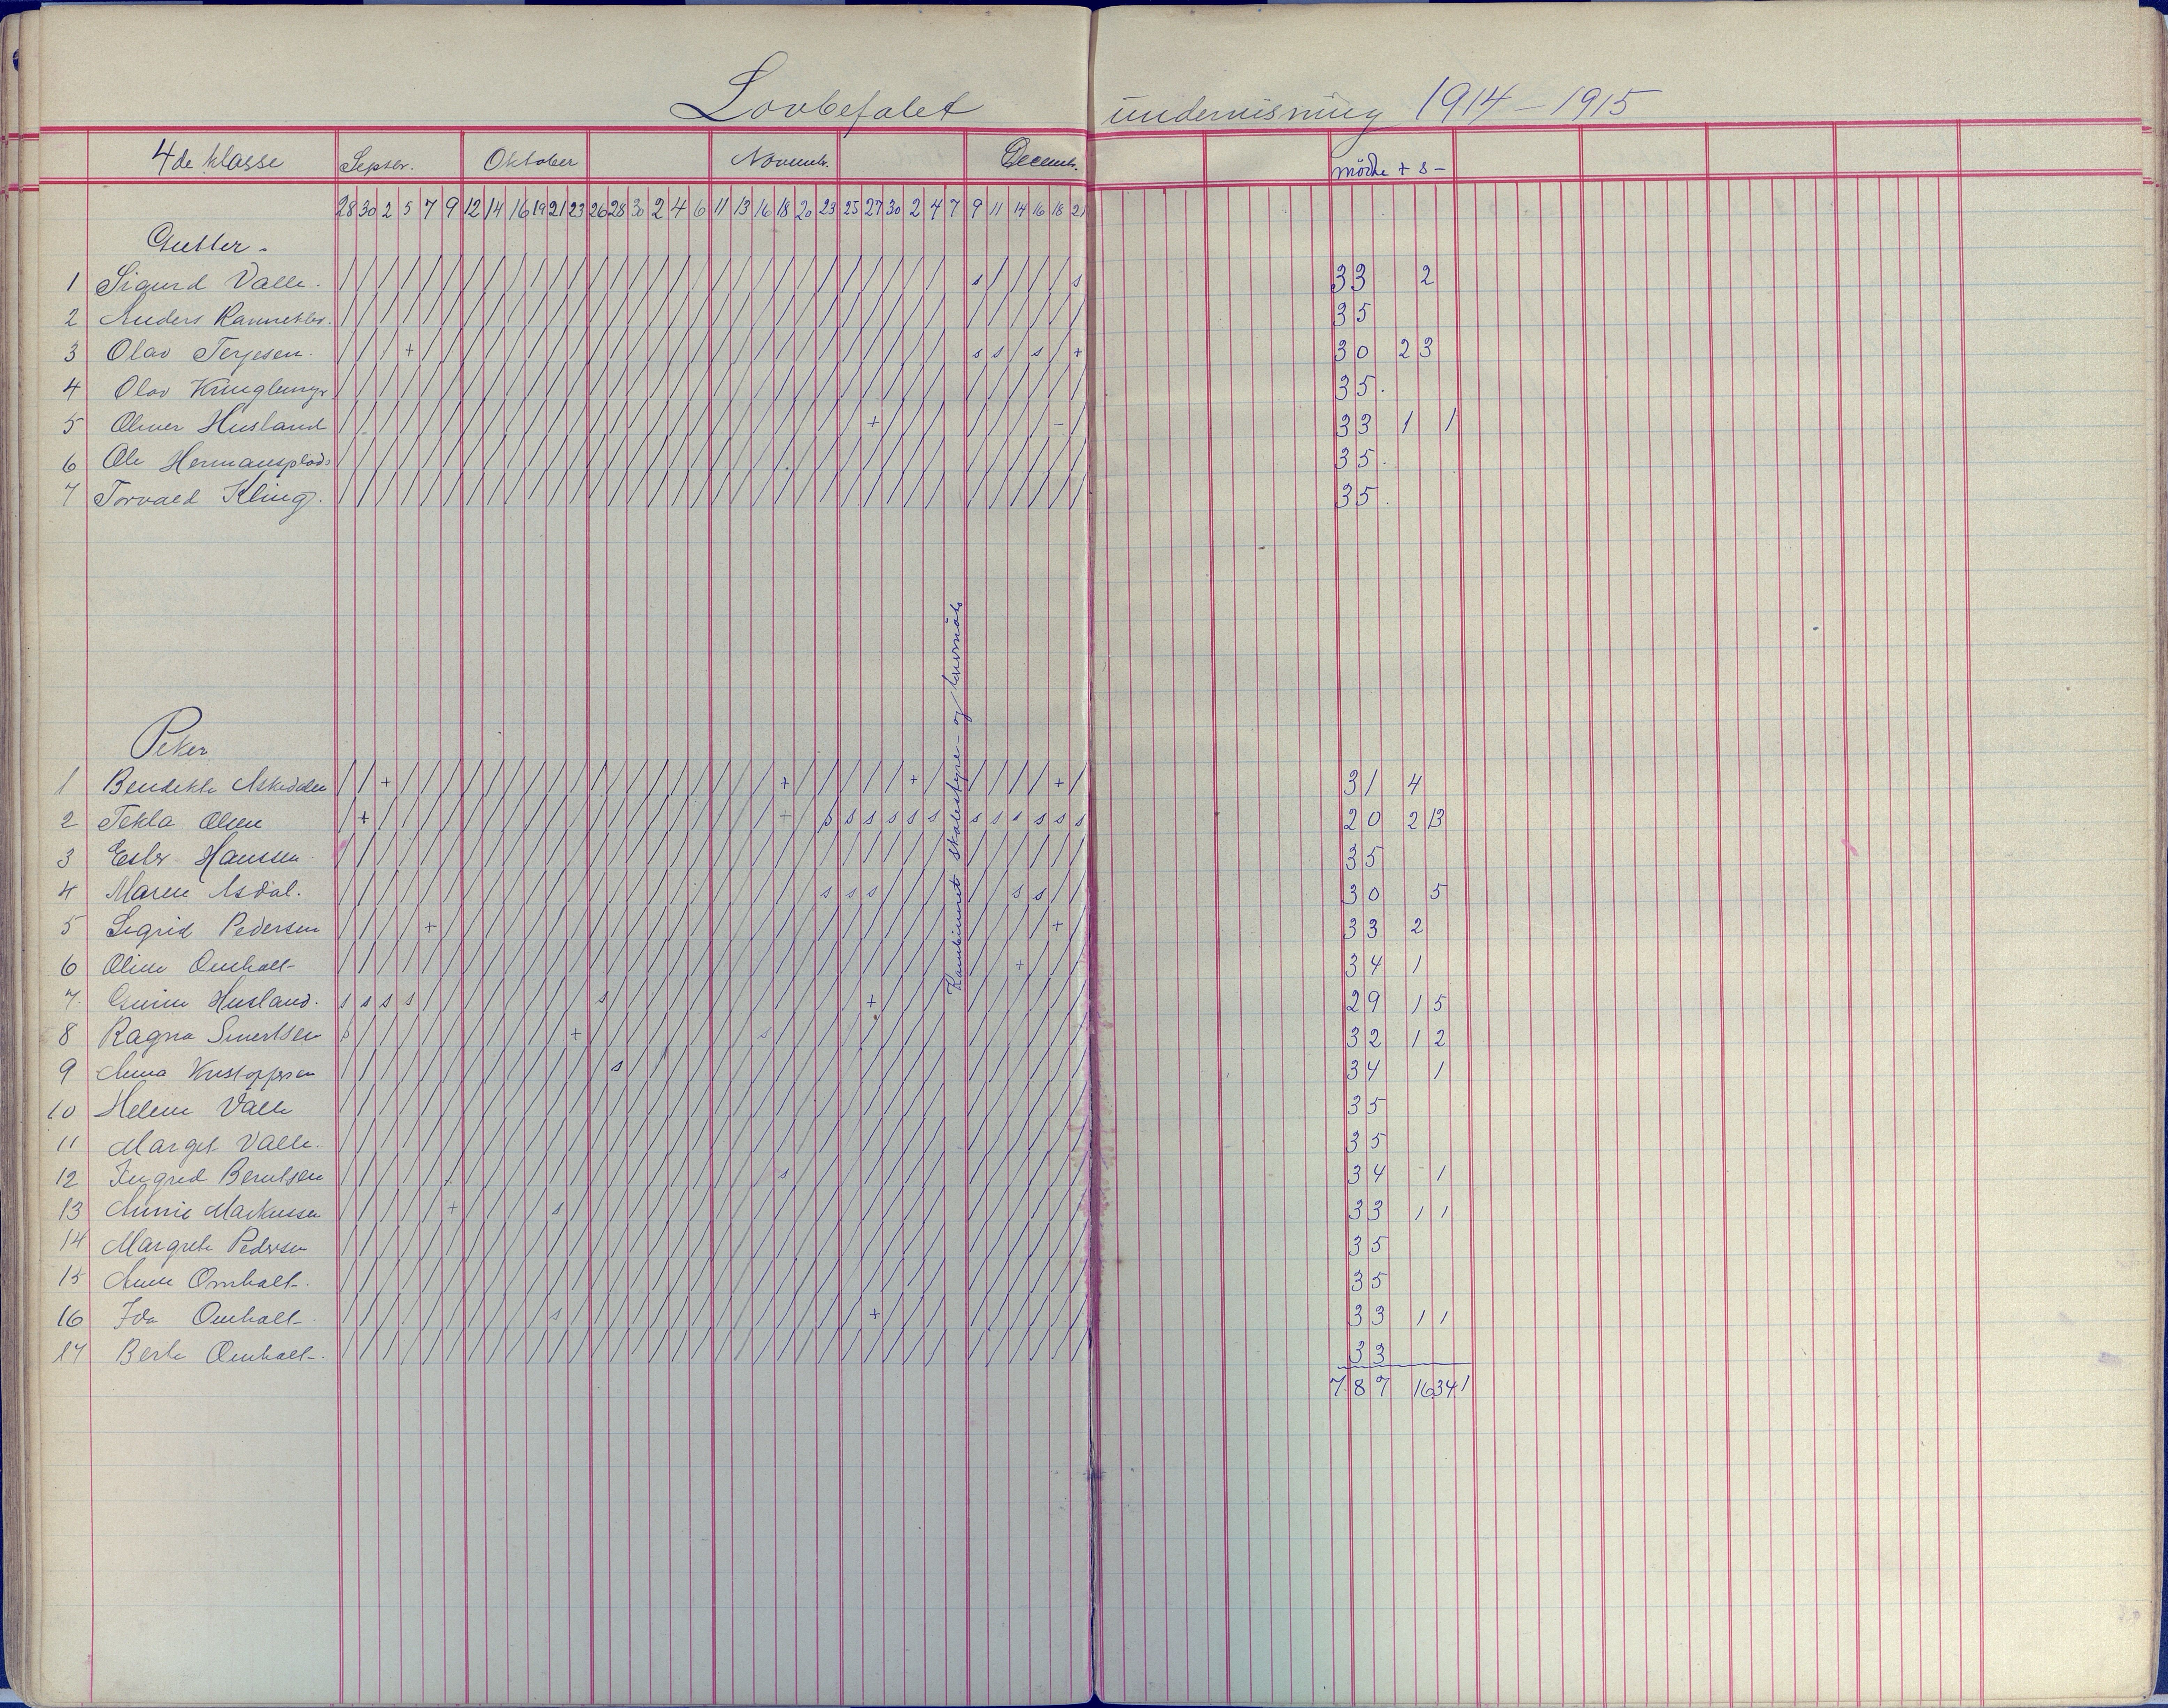 Lovbefalet undervisning 1914-1915
4de klasse Septbr. Oktober Novembr. Decembr. mödte + s -
28 30 2 5 7 9 12 14 16 19 21 23 26 28 30 2 4 6 11 13 16 18 20 23 25 27 30 2 4 7 9 11 14 16 18 21
Gutter.
1 Sigurd Valle. 33 2
2 Anders 35
3 Olav Terjesen. 30 2 3
4 Olav 35.
5 Oliver Husland 33 1 1
6 Ole Hermansplads 35.
7 Torvald Kling. 35.
Kombineret skolestyre- og
Piker
1 Bendikte Askedalen 31 4
2 Tekla Olsen 20 2 13
3 Ester Hanssen 35
4 Maren Asdal. 30 5
5 Sigrid Pedersen 33 2
6 Oline Omholt- 34 1
7. Husland. 29 1 5
8 Ragna 32 1 2
9 Anna Kristoffersen 34 1
10 Helene Valle 35
11 Marget Valle. 35
12 Ingrid Berntsen 34 1
13 Minnie Markussen 33 1 1
14 Margrete Pedersen 35
15 Anne Omholt-. 35
16 Ida Omholt-. 33 1 1
17 Berte Omholt-. 33
787 16 34 1